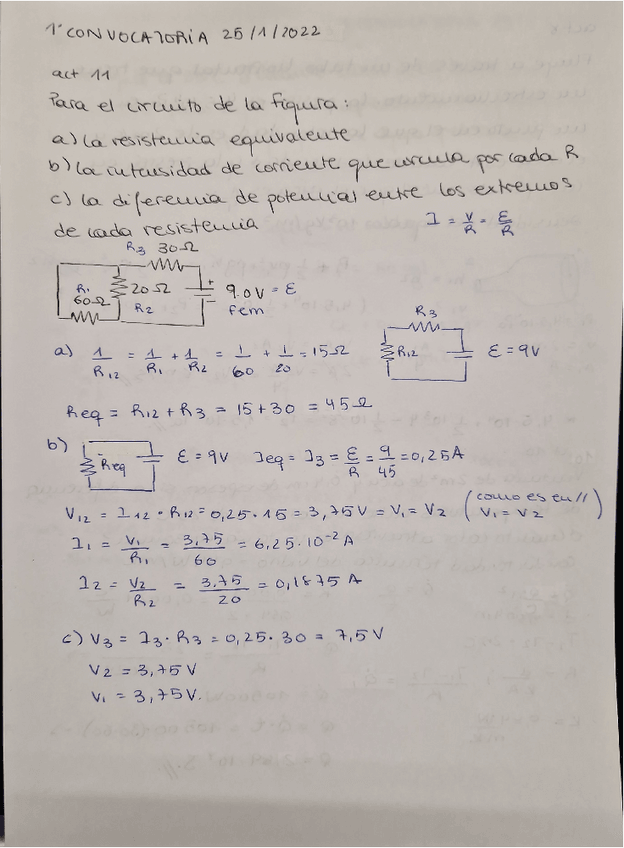 1ª CONVOCATORIA 25/1/2022
act 11
Para el circuito de la figura:
a) La resistencia equivalente
b) La intensidad de corriente que circula por cada R
c) La diferencia de potencial entre los extremos
de cada resistencia I = V/R = ε/R
R3 30Ω
R1 60Ω 20Ω R2 + 9.0V = ε fem
R3
R12 ε = 9V
a) 1/R12 = 1/R1 + 1/R2 = 1/60 + 1/20 = 15Ω
Req = R12 + R3 = 15 + 30 = 45Ω
b) Req ε = 9V Ieq = I3 = ε/R = 9/45 = 0,25A
V12 = I12 · R12 = 0,25 · 15 = 3,75V = V1 = V2 (como es en // V1 = V2)
I1 = V1/R1 = 3,75/60 = 6,25·10⁻² A
I2 = V2/R2 = 3,75/20 = 0,1875 A
c) V3 = I3 · R3 = 0,25 · 30 = 7,5 V
V2 = 3,75 V
V1 = 3,75 V.